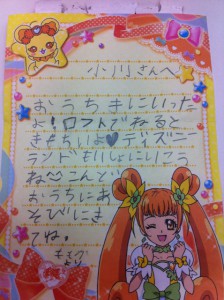 小川さんへ
おうちきにいった
よ!ロフトでねると
きもちいよ♥ディズニー
ランドもいしょにいこう
ね こんど
おうちにあ
そびにき
てね。
より